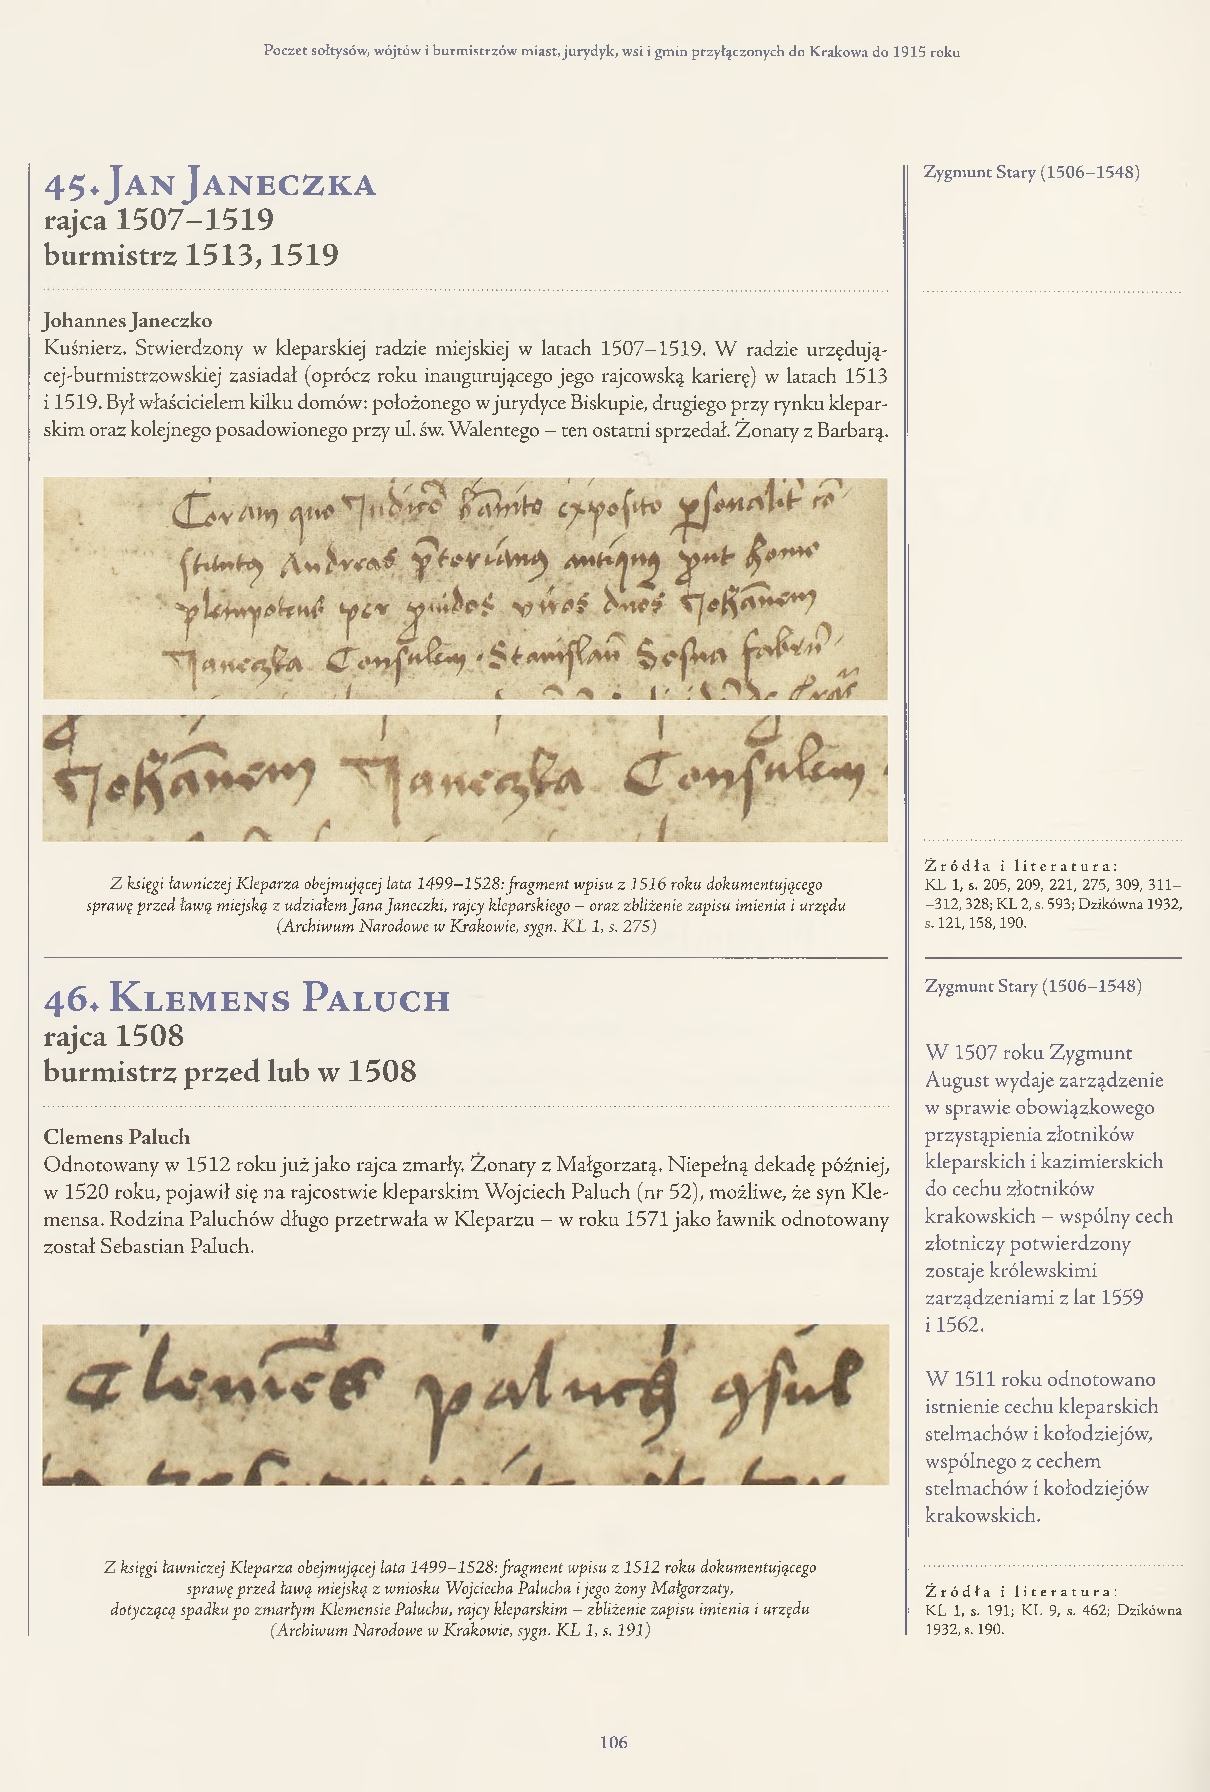 Poczet sołtysów, wójtów i burmistrzów miast, jurydyk, wsi i gmin przyłączonych do Krakowa do 1915 roku
45. Jan Janeczka
rajca 1507–1519
burmistrz 1513, 1519
Johannes Janeczko
Kuśnierz. Stwierdzony w kleparskiej radzie miejskiej w latach 1507–1519. W radzie urzędują-
cej-burmistrzowskiej zasiadał (oprócz roku inaugurującego jego rajcowską karierę) w latach 1513
i 1519. Był właścicielem kilku domów: położonego w jurydyce Biskupie, drugiego przy rynku klepar-
skim oraz kolejnego posadowionego przy ul. św. Walentego – ten ostatni sprzedał. Żonaty z Barbarą.
Coram quo exposito
Andreas
per viros
Janeczka Consulem Sosna
Janeczka Consulem
Z księgi ławniczej Kleparza obejmującej lata 1499–1528: fragment wpisu z 1516 roku dokumentującego
sprawę przed ławą miejską z udziałem Jana Janeczki, rajcy kleparskiego – oraz zbliżenie zapisu imienia i urzędu
(Archiwum Narodowe w Krakowie, sygn. KL 1, s. 275)
Zygmunt Stary (1506–1548)
Źródła i literatura:
KL 1, s. 205, 209, 221, 275, 309, 311–
–312, 328; KL 2, s. 593; Dzikówna 1932,
s. 121, 158, 190.
46. Klemens Paluch
rajca 1508
burmistrz przed lub w 1508
Clemens Paluch
Odnotowany w 1512 roku już jako rajca zmarły. Żonaty z Małgorzatą. Niepełną dekadę później,
w 1520 roku, pojawił się na rajcostwie kleparskim Wojciech Paluch (nr 52), możliwe, że syn Kle-
mensa. Rodzina Paluchów długo przetrwała w Kleparzu – w roku 1571 jako ławnik odnotowany
został Sebastian Paluch.
paluch
Z księgi ławniczej Kleparza obejmującej lata 1499–1528: fragment wpisu z 1512 roku dokumentującego
sprawę przed ławą miejską z wniosku Wojciecha Palucha i jego żony Małgorzaty,
dotyczącą spadku po zmarłym Klemensie Paluchu, rajcy kleparskim – zbliżenie zapisu imienia i urzędu
(Archiwum Narodowe w Krakowie, sygn. KL 1, s. 191)
Zygmunt Stary (1506–1548)
W 1507 roku Zygmunt
August wydaje zarządzenie
w sprawie obowiązkowego
przystąpienia złotników
kleparskich i kazimierskich
do cechu złotników
krakowskich – wspólny cech
złotniczy potwierdzony
zostaje królewskimi
zarządzeniami z lat 1559
i 1562.
W 1511 roku odnotowano
istnienie cechu kleparskich
stelmachów i kołodziejów,
wspólnego z cechem
stelmachów i kołodziejów
krakowskich.
Źródła i literatura:
KL 1, s. 191; KL 9, s. 462; Dzikówna
1932, s. 190.
106